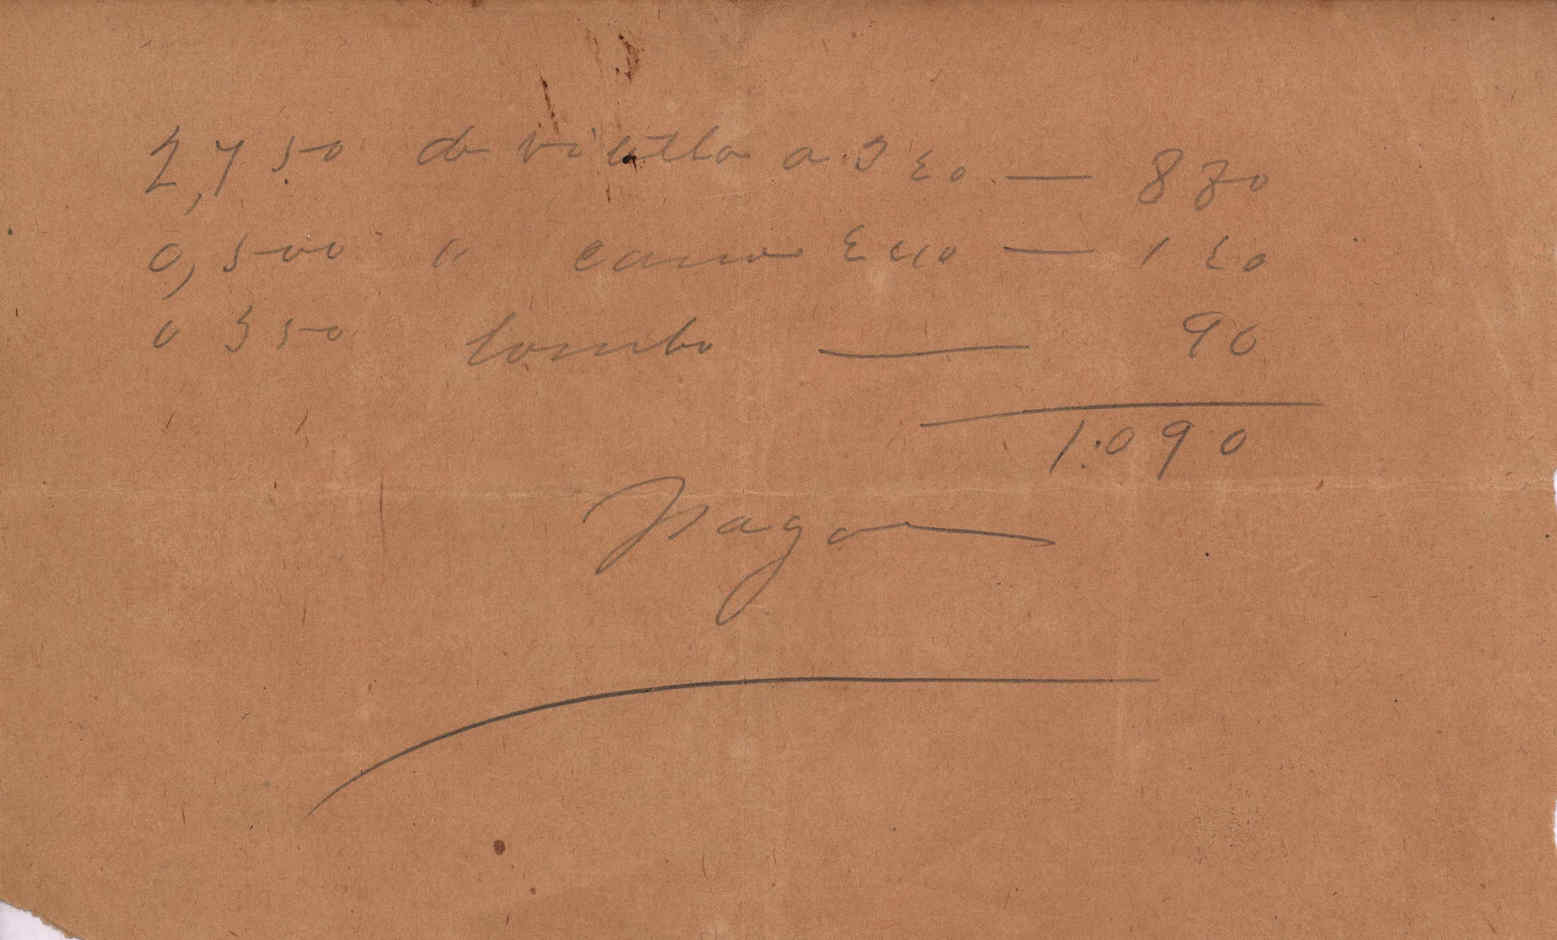 2,750 de vitella a 320 — 880
0,500 " carne 240 — 120
0 350 lombo — 90
1.090
Pago